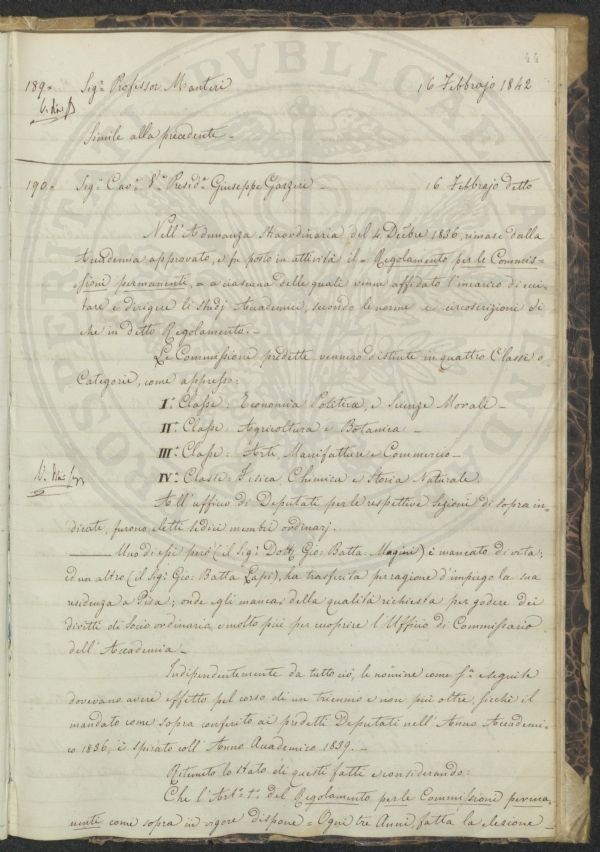 44
189. Sigr. Professor Manteri 16 Febbrajo 1842
Simile alla precedente.
190. Sigr. Cavr. Vo. Presidte. Giuseppe Garzeri 16 Febbrajo detto
Nell'Adunanza straordinaria del 4 Decbre 1836, rimase dalla
Accademia approvato, e fu posto in attività il = Regolamento per le Commis=
sioni permanenti, = a ciascuna delle quali venne affidato l'incarico di eci=
tare e dirigere li studj Accademici, secondo le norme e circoscrizioni di
che in detto Regolamento.
Le Commissioni predette vennero distinte in quattro Classi o
Categorie, come appresso:
Ia. Classe: Economia Politica, e Scienze Morali
IIa. Classe: Agricoltura e Botanica
IIIa. Classe: Arti, Manifatture e Commercio
IVa. Classe: Fisica Chimica e Storia Naturale.
All'uffizio di Deputati per le respettive Sezioni di sopra in=
dicate, furono eletti sedici membri ordinarj.
Uno di essi però (il Sigr. Dott. Gio: Batta: Magini) è mancato di vita;
ed un altro (il Sigr. Gio: Batta Lapi), ha trasferita per ragione d'impiego la sua
residenza a Pisa; onde gli manca della qualità richiesta per godere dei
diritti di Socio ordinario, e molto più per ricoprire l'Uffizio di Commissario
dell'Accademia.
Indipendentemente da tutto ciò, le nomine come sa. eseguite
dovevano avere effetto pel corso di un triennio e non più oltre, sicchè il
mandato come sopra conferito ai predetti Deputati nell'Anno Accademi=
co 1836, è spirato coll'Anno Accademico 1839.
Ritenuto lo stato di questi fatti e considerando:
Che l'Arto. 1o. del Regolamento per le Commissioni perma=
nenti come sopra in vigore dispone = Ogni tre Anni, fatta la elezione